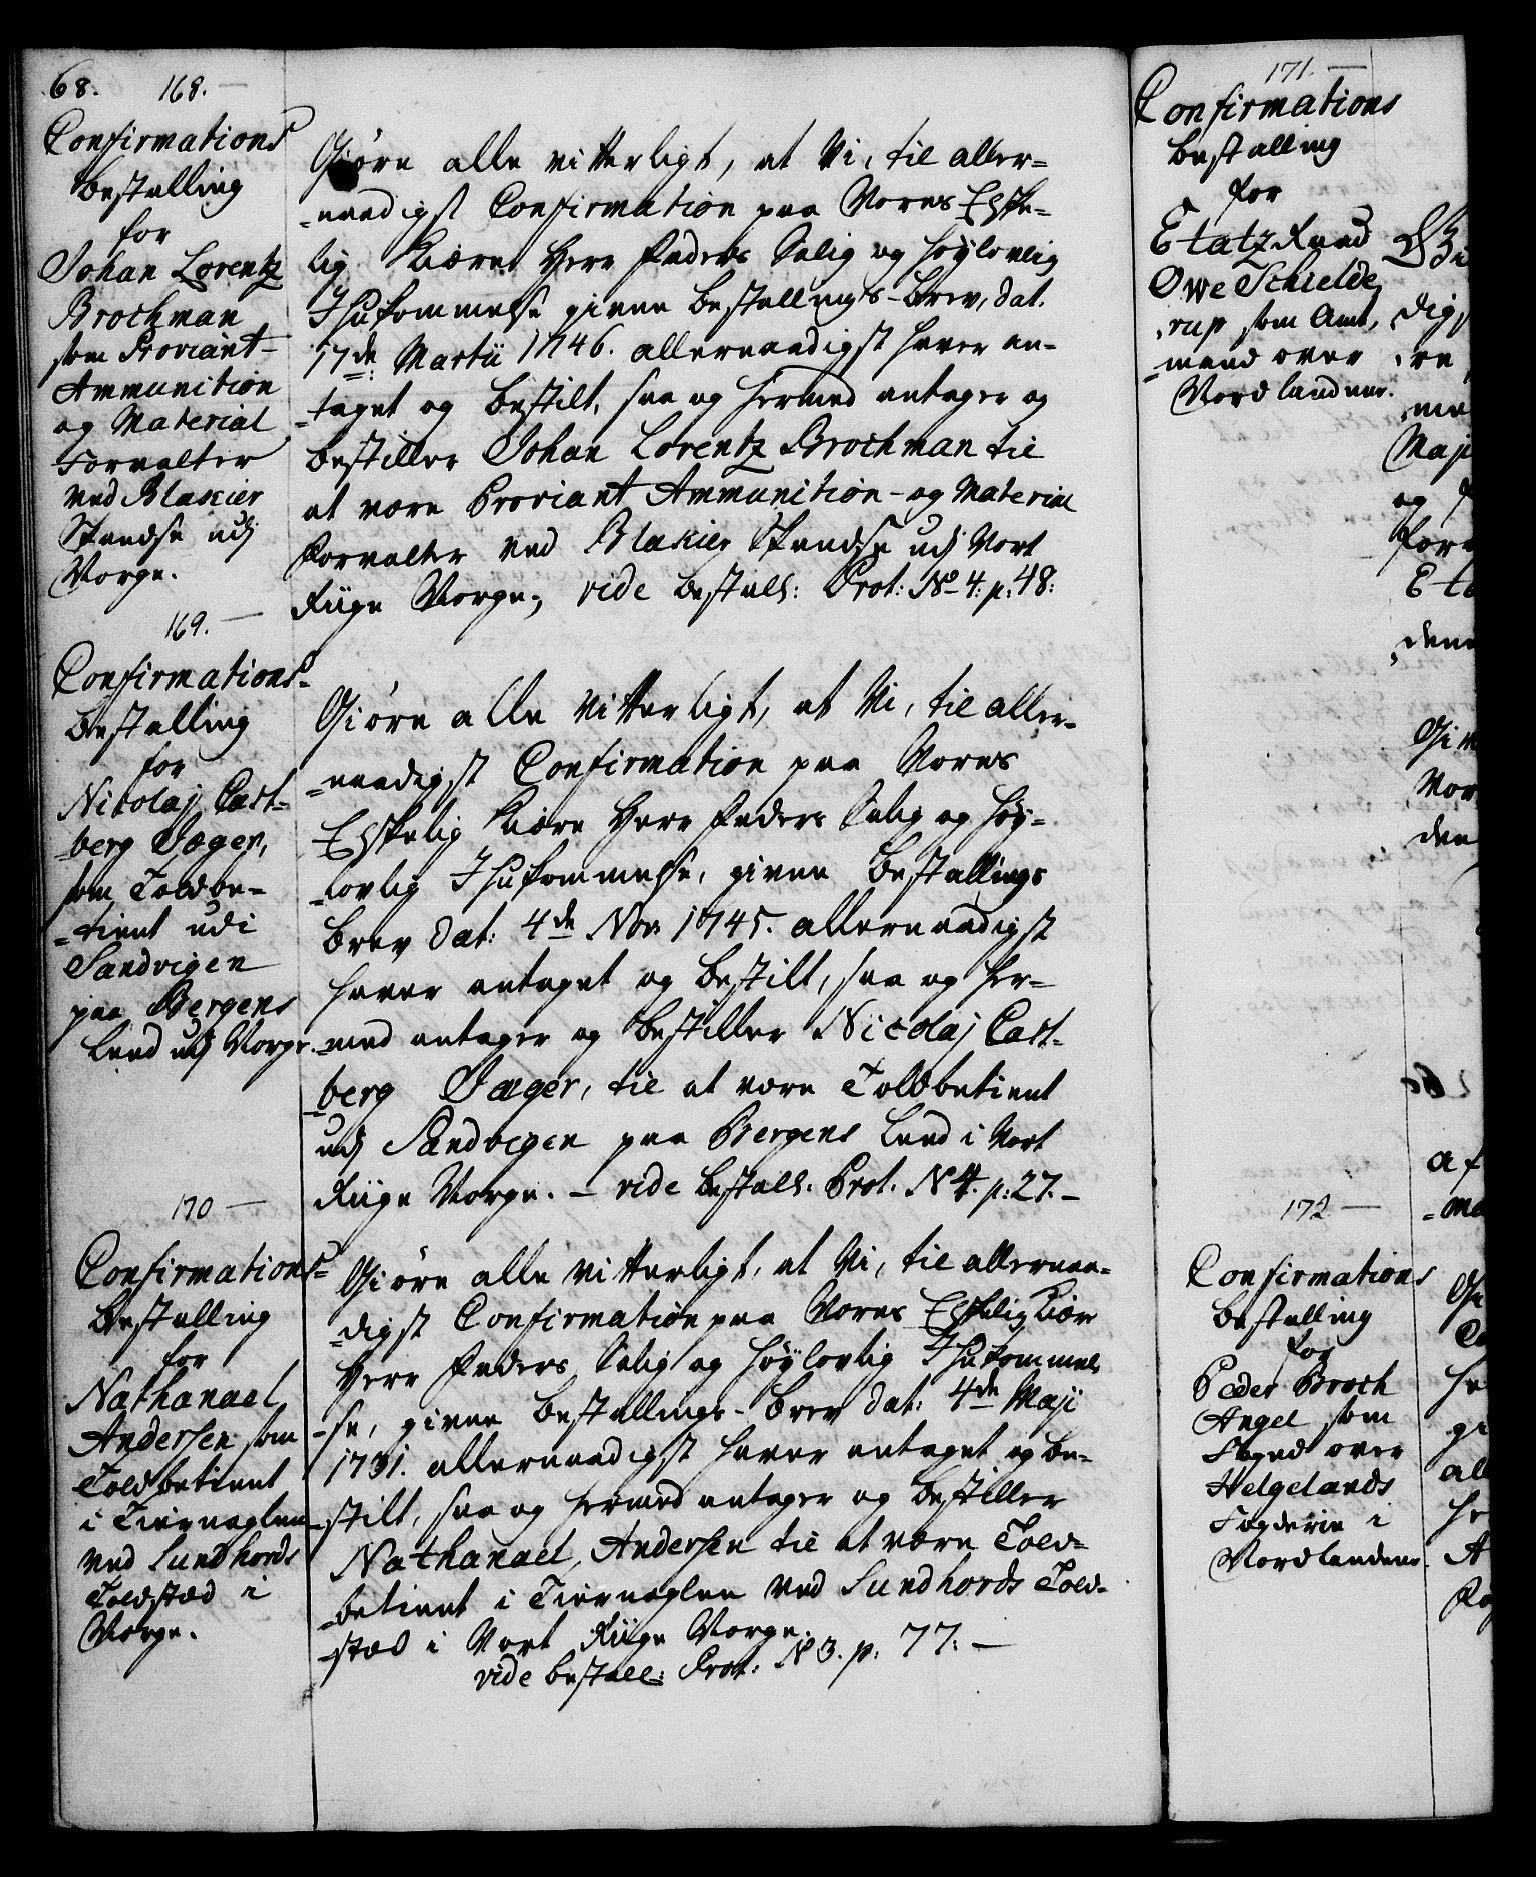 68.
168. —
Confirmations
Bestalling
for
Johan Lorentz
Brochman
som Proviant-
Ammunition
og Material
Forvalter
ved Blakier
Skandse udj
Norge.
Giøre alle vitterligt, at Vi, til aller=
=naadigst Confirmation paa Vores Elske=
lig Kiære Herr Faders Salig og høylovlig
Ihukommelse givne Bestallings-Brev, dat.
17de Martii 1746. allernaadigst haver an=
=taget og bestilt, saa og hermed antager og
bestiller Johan Lorentz Brochman til
at være Proviant Ammunition- og Material
Forvalter ved Blakier Skandse udj Vort
Riige Norge, vide Bestall: Prot: No 4: p: 48:
169. —
Confirmations=
Bestalling
for
Nicolaj Cast=
=berg Jæger,
som Toldbe=
=tient udi
Sandvigen
paa Bergens
Land udj Norge.
Giøre alle vitterligt, at Vi, til aller=
=naadigst Confirmation paa Vores
Elskelig Kiære Herr Faders Salig og Høy=
=lovlig Ihukommelse, givne Bestallings
Brev dat: 4de Nov 1745. allernaadigst
haver antaget og bestilt, saa og her=
=med antager og bestiller Nicolaj Cast=
=berg Jæger, til at være Toldbetient
udj Sandvigen paa Bergens Land i Vort
Riige Norge. — vide Bestall. Prot. N 4. p: 27. —
170 —
Confirmations=
Bestalling
for
Nathanael
Andersen som
Toldbetient
i Tiernaglen
ved Sundhords
Toldstæd i
Norge.
Giøre alle vitterligt, at Vi, til allernaa=
=digst Confirmation paa Vores Elskelig Kiær
Herr Faders Salig og høylovlig Ihukommel
=se, givne Bestallings-Brev dat: 4de Maji
1731. allernaadigst haver antaget og be=
=stilt, saa og hermed antager og bestiller
Nathanael Andersen til at være Told=
=betient i Tiernaglen ved Sundhords Told=
=stæd i Vort Riige Norge.
vide Bestall: Prot: N 3. p: 77: —
171. —
Confirmations
Bestalling
for
Etatz Raad
Owe Schielde,
,rup som Amt,
=mand over
Nordlandene.
dig,
,re
,me
Maj
og
for
Et
den
Gi
Vor
den
172 —
Confirmations
Bestalling
for
Peder Broch
Angel som
Foged over
Helgelands
Fogderie i
Nordlandene.
af
=me
Gi
he
gi
all
he
A
Fog